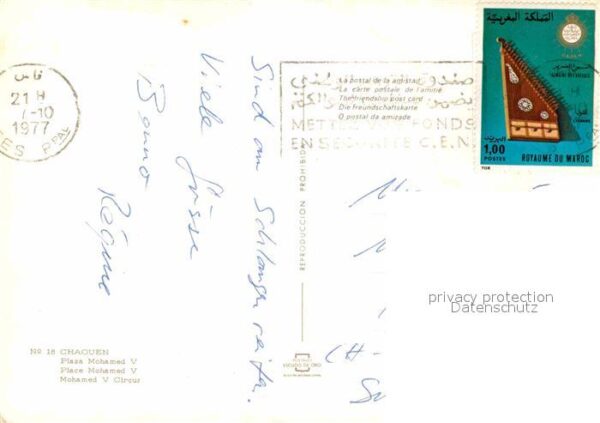 فاس
21 H
7-10
1977
صندوق
METTEZ VOS FONDS
EN SECURITE C.E.N
La postal de la amistad
La carte postale de l'amitié
The friendship post card
Die Freundschaftskarte
O postal da amizade
المملكة المغربية
1,00
POSTES
ROYAUME DU MAROC
Sind am Schlangereiten.
Viele Grüsse
Benno
Régine
REPRODUCCION PROHIBID
CH-
privacy protection
Datenschutz
Nº 18 CHAOUEN
Plaza Mohamed V
Place Mohamed V
Mohamed V Circus
ESCUDO DE ORO